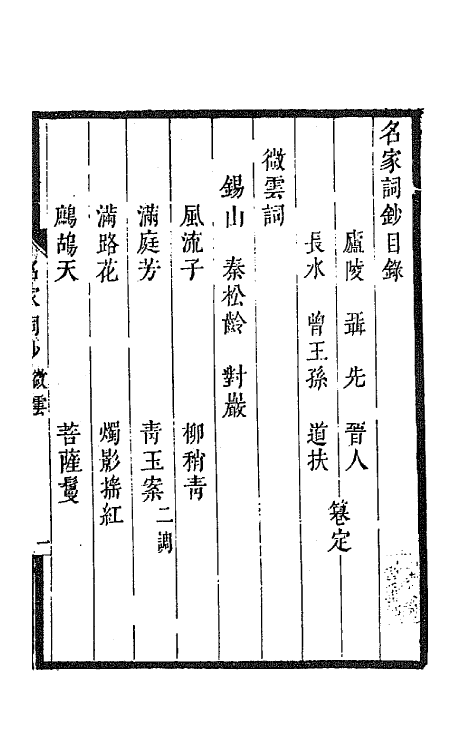 名家詞鈔目錄
廬陵 聶先 晉人
長水 曾王孫 道扶
篹定
微雲詞
錫山 秦松齡 對巖
風流子 柳稍青
滿庭芳 青玉案二調
滿路花 燭影搖紅
鷓鴣天 菩薩鬘
名家詞鈔 微雲 一